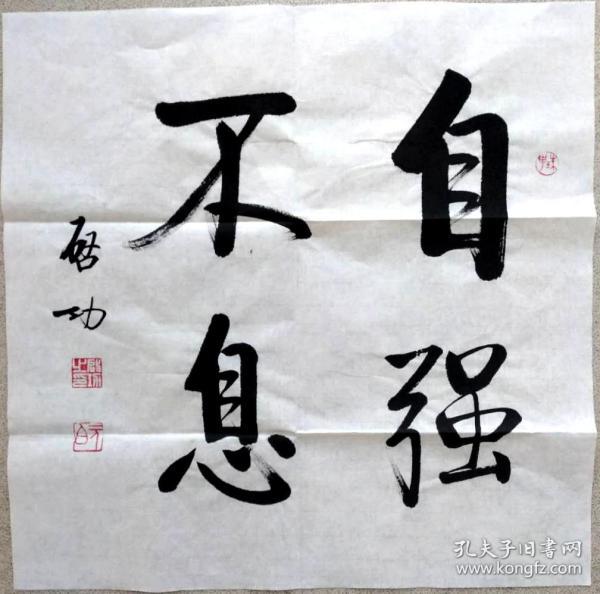 自强
不息
启功
孔夫子旧书网
www.kongfz.com